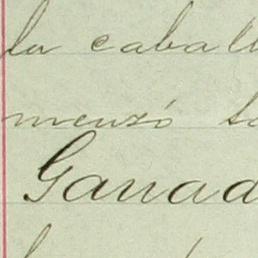 la caball
menzó to
Ganad